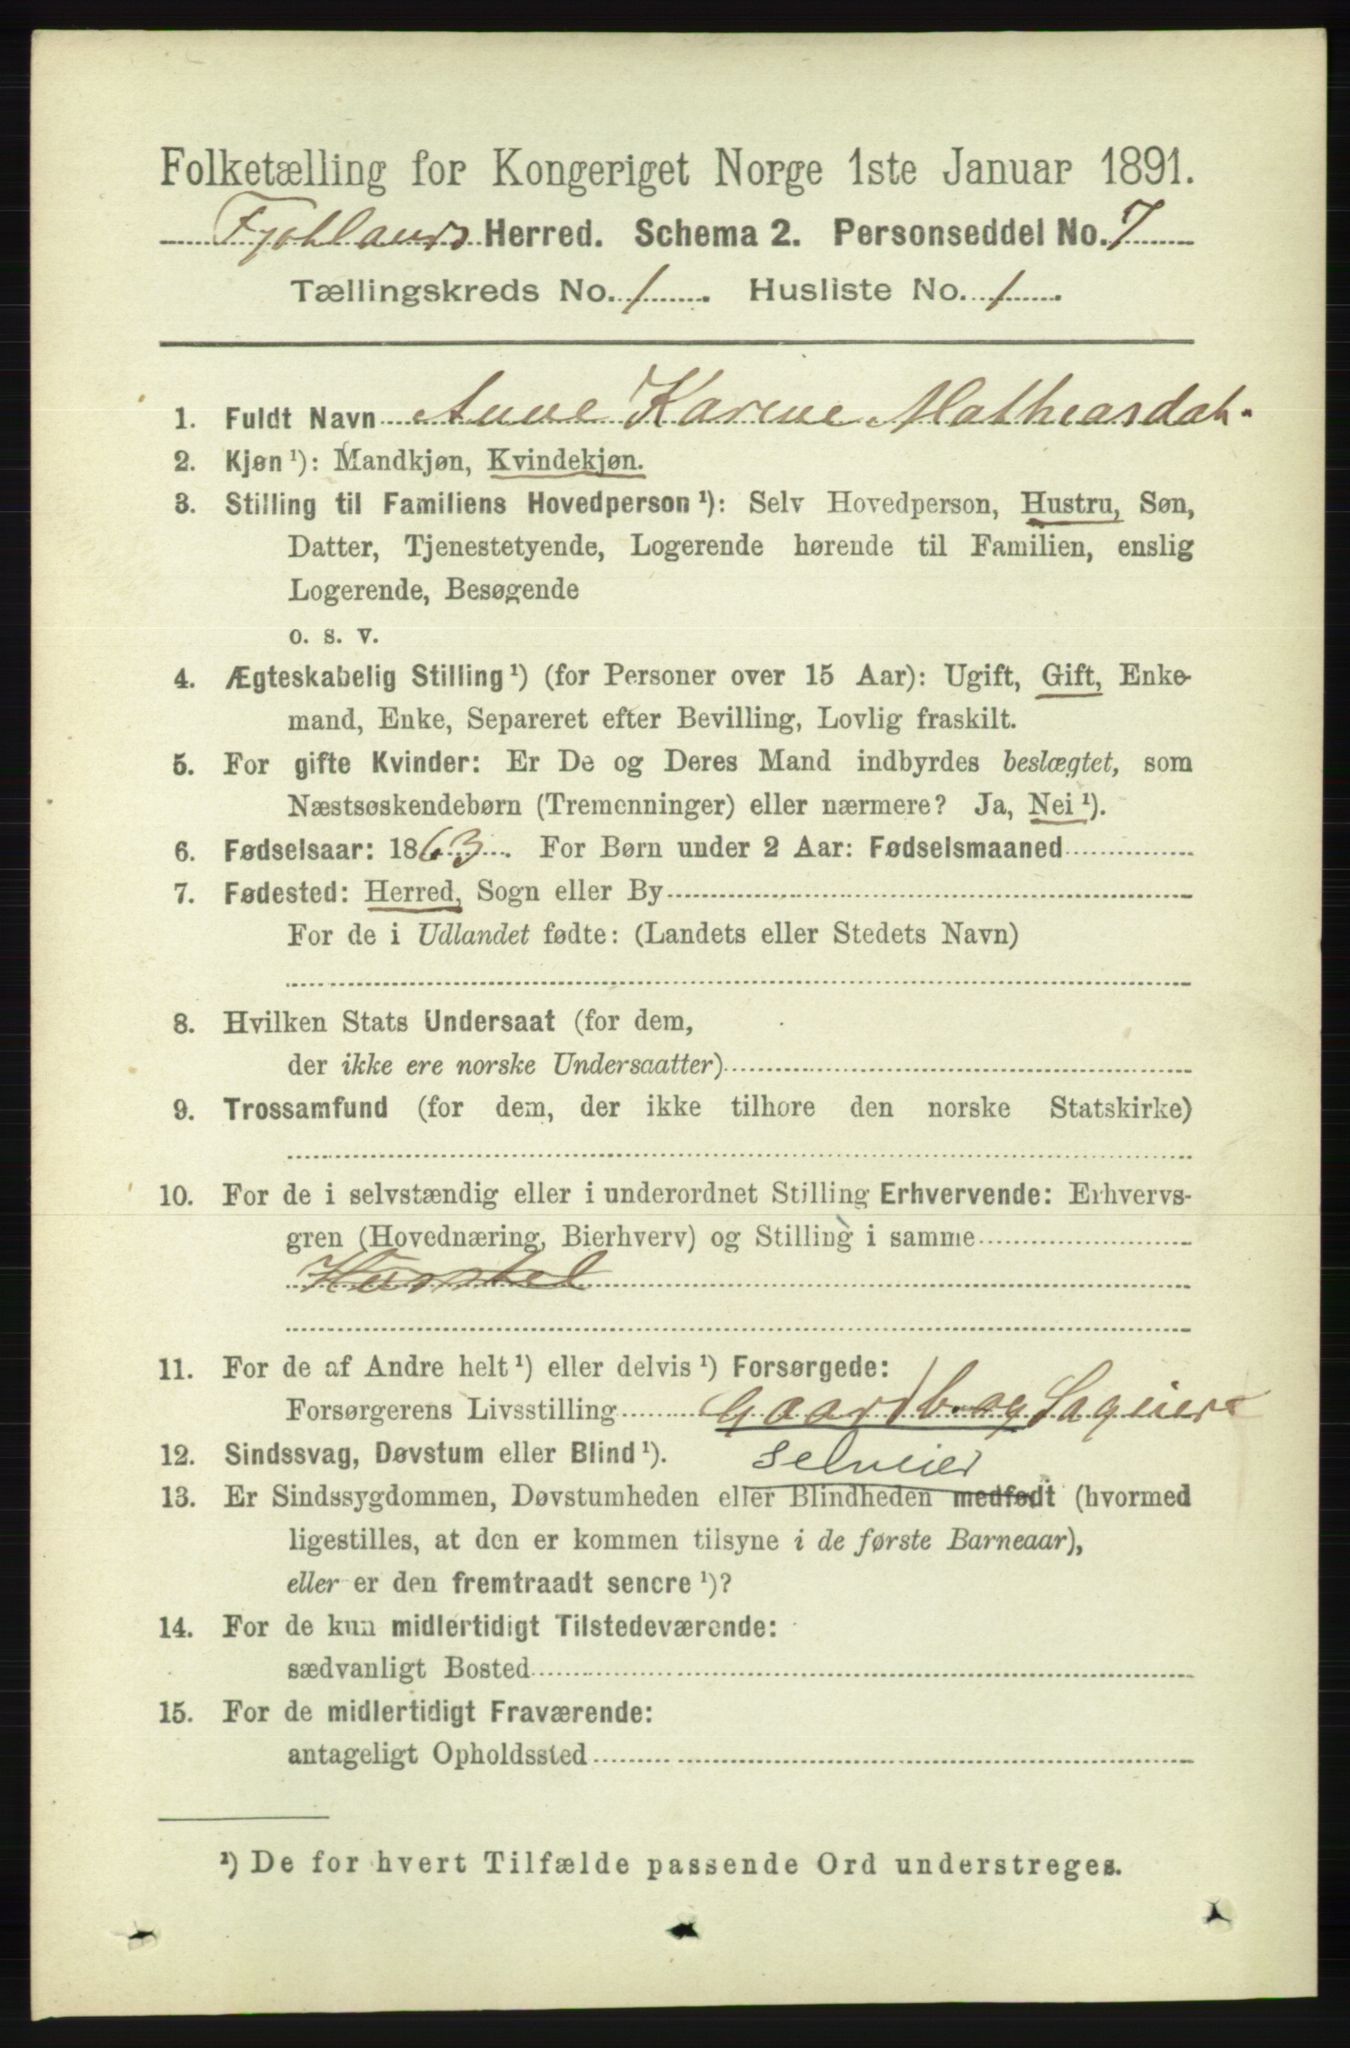 Folketælling for Kongeriget Norge 1ste Januar 1891.
Fjotlands Herred. Schema 2. Personseddel No. 7
Tællingskreds No. 1. Husliste No. 1.
1. Fuldt Navn Anne Karine Mathiasdat.
2. Kjøn ¹): Mandkjøn, Kvindekjøn.
3. Stilling til Familiens Hovedperson ¹): Selv Hovedperson, Hustru, Søn,
Datter, Tjenestetyende, Logerende hørende til Familien, enslig
Logerende, Besøgende
o. s. v.
4. Ægteskabelig Stilling ¹) (for Personer over 15 Aar): Ugift, Gift, Enke-
mand, Enke, Separeret efter Bevilling, Lovlig fraskilt.
5. For gifte Kvinder: Er De og Deres Mand indbyrdes beslægtet, som
Næstsøskendebørn (Tremenninger) eller nærmere? Ja, Nei ¹).
6. Fødselsaar: 1863. For Børn under 2 Aar: Fødselsmaaned
7. Fødested: Herred, Sogn eller By
For de i Udlandet fødte: (Landets eller Stedets Navn)
8. Hvilken Stats Undersaat (for dem,
der ikke ere norske Undersaatter)
9. Trossamfund (for dem, der ikke tilhøre den norske Statskirke)
10. For de i selvstændig eller i underordnet Stilling Erhvervende: Erhvervs-
gren (Hovednæring, Bierhverv) og Stilling i samme
Husstel
11. For de af Andre helt ¹) eller delvis ¹) Forsørgede:
Forsørgerens Livsstilling Gaardb. og Sageier
12. Sindssvag, Døvstum eller Blind ¹). Selveier
13. Er Sindssygdommen, Døvstumheden eller Blindheden medfødt (hvormed
ligestilles, at den er kommen tilsyne i de første Barneaar),
eller er den fremtraadt senere ¹)?
14. For de kun midlertidigt Tilstedeværende:
sædvanligt Bosted
15. For de midlertidigt Fraværende:
antageligt Opholdssted
¹) De for hvert Tilfælde passende Ord understreges.